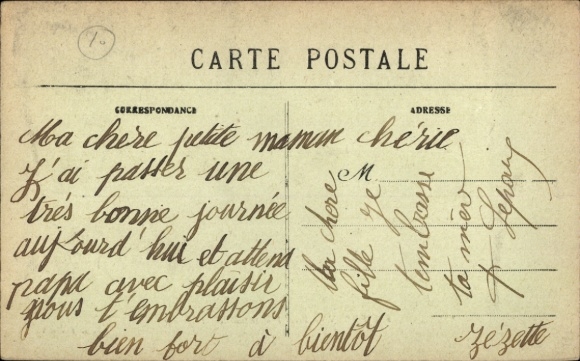 10
CARTE POSTALE
CORRESPONDANCE
ADRESSE
Ma chère petite maman cherie
J'ai passer une
très bonne journée
aujourd'hui et attend
papa avec plaisir
nous t'embrassons
bien fort à bientôt
Zézette
M
Ma chere
fille je
t'embrasse
ta mère